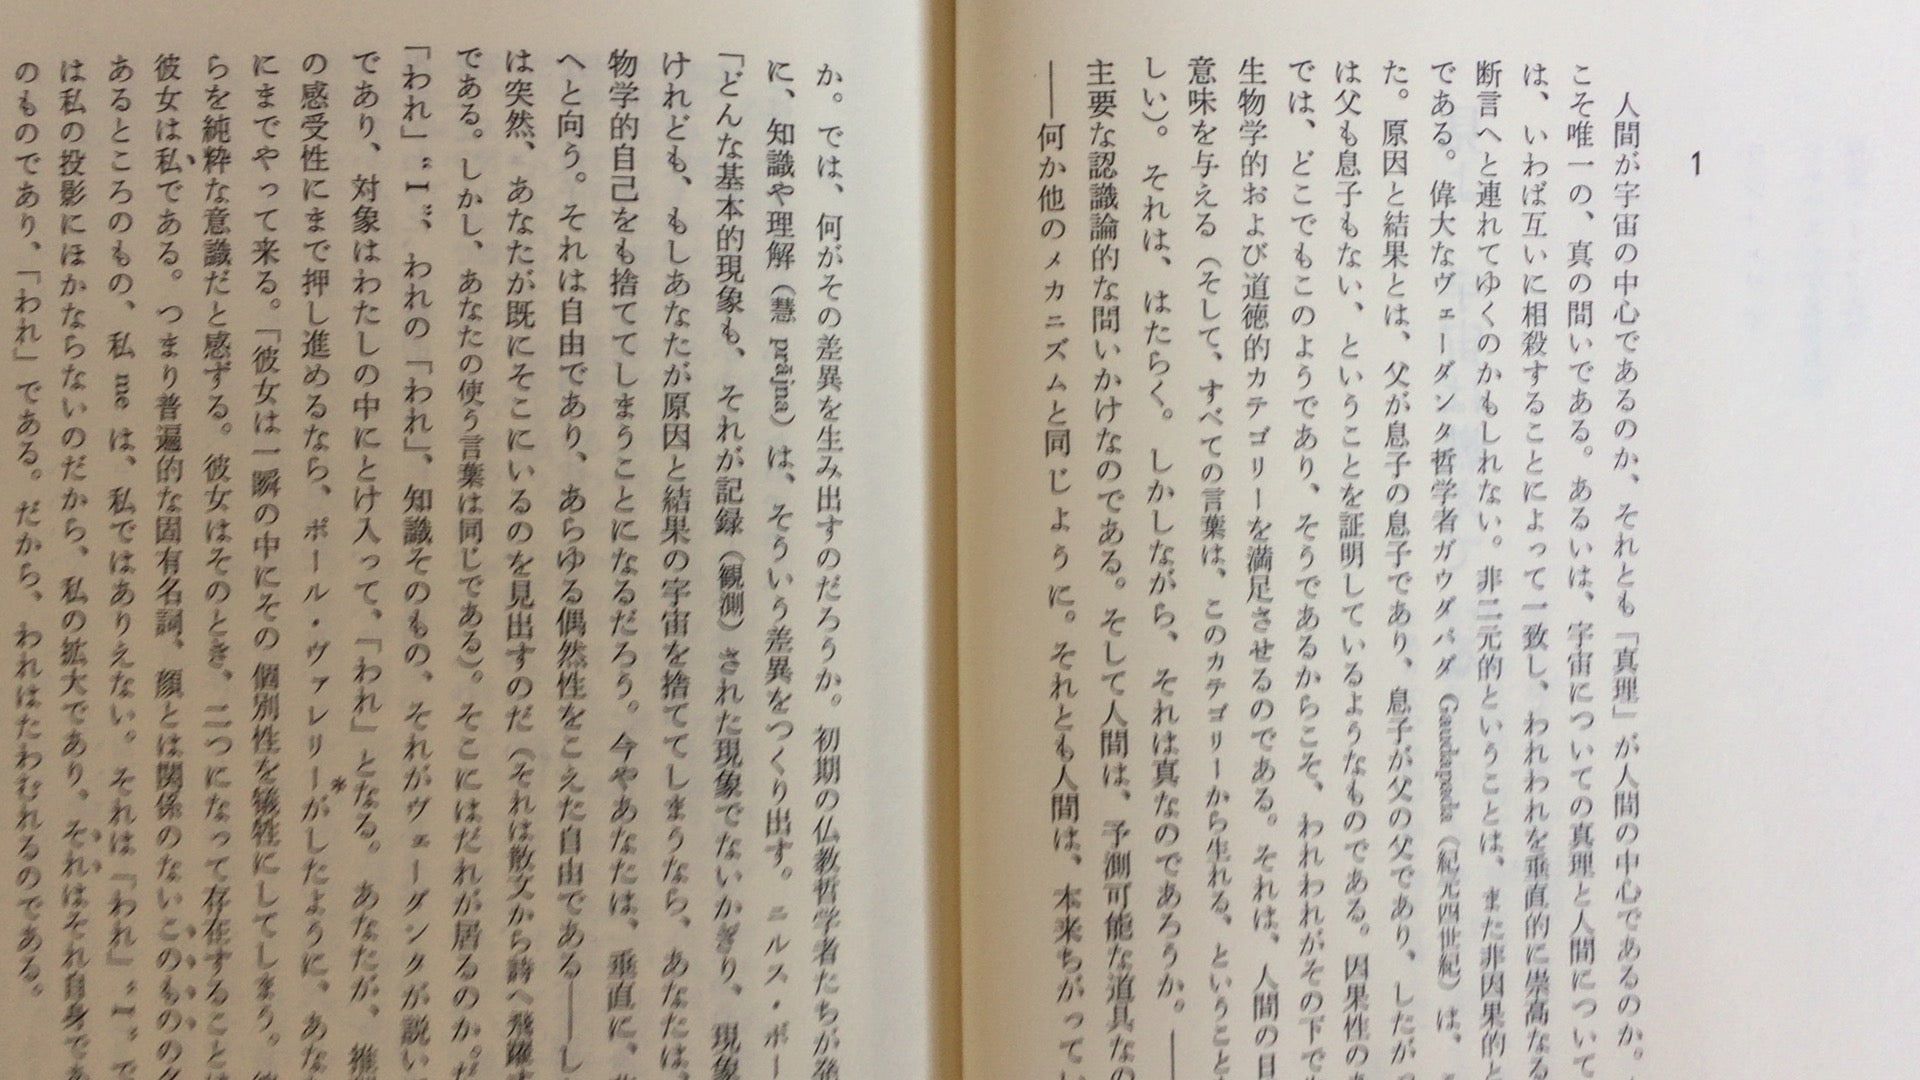 1
人間が宇宙の中心であるのか、それとも「真理」が人間の中心であるのか。
こそ唯一の、真の問いである。あるいは、宇宙についての真理と人間について
は、いわば互いに相殺することによって一致し、われわれを垂直的に崇高なる
断言へと連れてゆくのかもしれない。非二元的ということは、また非因果的と
である。偉大なヴェーダンタ哲学者ガウダパダ Gaudapada（紀元四世紀）は、
た。原因と結果とは、父が息子の息子であり、息子が父の父であり、したがっ
は父も息子もない、ということを証明しているようなものである。因果性の
では、どこでもこのようであり、そうであるからこそ、われわれがその下で
生物学的および道徳的カテゴリーを満足させるのである。それは、人間の日
意味を与える（そして、すべての言葉は、このカテゴリーから生れる、ということ
しい）。それは、はたらく。しかしながら、それは真なのであろうか。――
主要な認識論的な問いかけなのである。そして人間は、予測可能な道具なの
――何か他のメカニズムと同じように。それとも人間は、本来ちがってい
か。では、何がその差異を生み出すのだろうか。初期の仏教哲学者たちが発
に、知識や理解（慧 prājna）は、そういう差異をつくり出す。ニルス・ボー
「どんな基本的現象も、それが記録（観測）された現象でないかぎり、現象
けれども、もしあなたが原因と結果の宇宙を捨ててしまうなら、あなたは、
物学的自己をも捨ててしまうことになるだろう。今やあなたは、垂直に、
へと向う。それは自由であり、あらゆる偶然性をこえた自由である――し
は突然、あなたが既にそこにいるのを見出すのだ（それは散文から詩へ飛躍
である。しかし、あなたの使う言葉は同じである）。そこにはだれが居るのか。
「われ」“I”、われの「われ」、知識そのもの、それがヴェーダンタが説い
であり、対象はわたしの中にとけ入って、「われ」となる。あなたが、
の感受性にまで押し進めるなら、ポール・ヴァレリー*がしたように、あな
にまでやって来る。「彼女は一瞬の中にその個別性を犠牲にしてしまう。
らを純粋な意識だと感ずる。彼女はそのとき、二つになって存在することは
彼女は私である。つまり普遍的な固有名詞、顔とは関係のないこのものの
あるところのもの、私 me は、私ではありえない。それは「われ」“I”で
は私の投影にほかならないのだから、私の拡大であり、それはそれ自身であ
のものであり、「われ」である。だから、われはたわむれるのである。